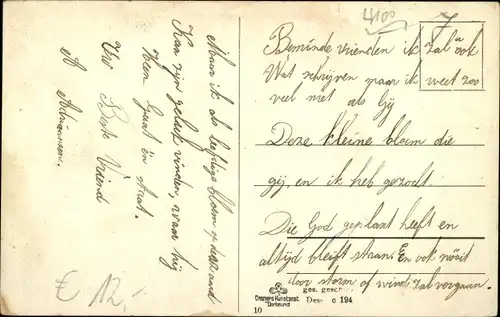 4100
7
Beminde vrienden ik zal u ook
Wat schrijven maar ik weet zoo
veel niet als Gij
Deze kleine bloem die
gij, en ik heb gezocht.
Die God geplant heeft en
altijd blijft staan. En ook nooit
door storm of wind zal vergaan.
Maar ik als leeftige bloem op deze aard
Kan zijn geluk vinden, waar hij
Heen Gaat en staat.
Uw Beste Vriend
A Adriaansen.
€ 12,-
Cramers Kunstanst.
Dortmund
ges. gesch.
Dess. c 194
10